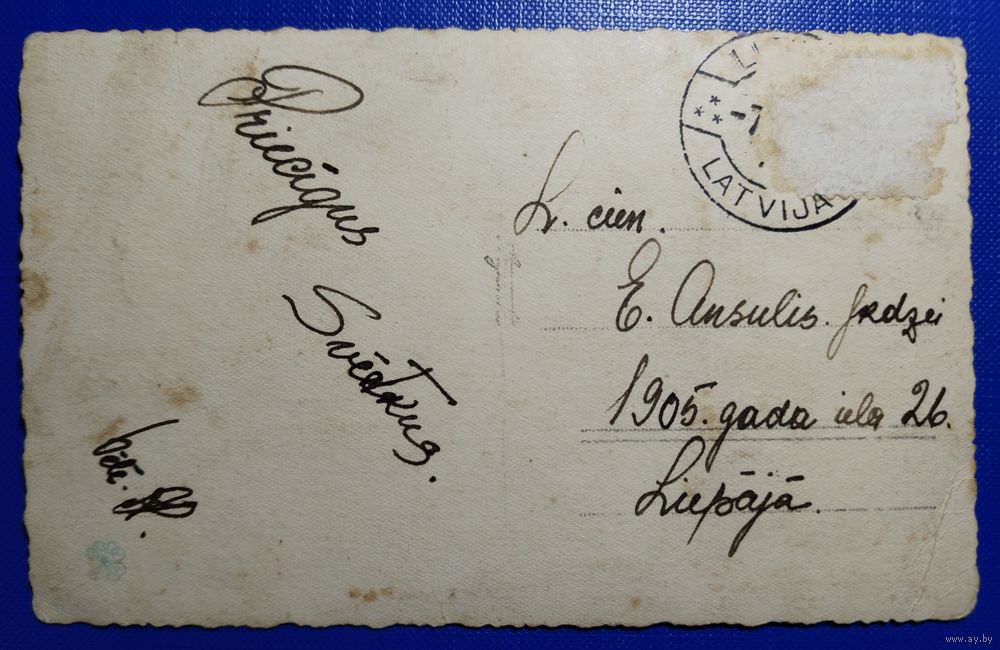 Priecīgus
Svētkus.
vēl.
LATVIJA
L. cien.
E. Ansulis. Jrdzei
1905. gada iela 26.
Liepājā.
www.ay.by